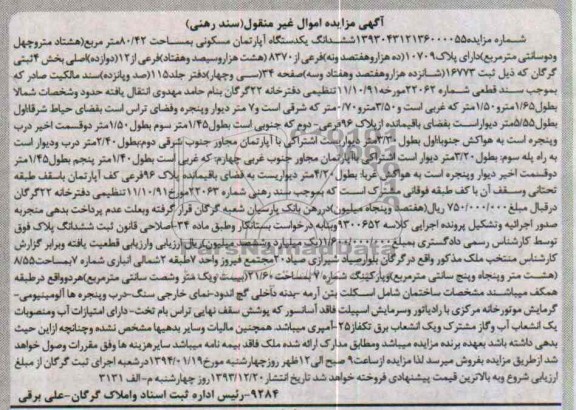 آگهی مزایده اموال غیر منقول(سند رهنی)
شماره مزایده139304312136000055ششدانگ یکدستگاه آپارتمان مسکونی بمساحت 80/42متر مربع(هشتاد متروچهل
ودوسانتی مترمربع)دارای پلاک10709(ده هزاروهفتصدونه)فرعی از8370(هشت هزاروسیصد وهفتاد)فرعی از12(دوازده)اصلی بخش 4ثبتی
گرگان که ذیل ثبت 16773(شانزده هزاروهفتصد وهفتاد وسه)صفحه 34(سی وچهار)دفتر جلد115(صد وپانزده)سند مالکیت صادر که
بموجب سند قطعی شماره 22062 مورخه11/10/91تنظیمی دفترخانه 22گرگان بنام حامد مهدوی انتقال یافته حدود ومشخصات شمالا
بطول1/65مترو1/50متر که غربی است و3/50مترو0/70متر که شرقی است و7 متر دیوار وپنجره وفضای تراس است بفضای حیاط شرقااول
بطول5/55متر دیواراست بفضای باقیمانده ازپلاک 96فرعی دوم که جنوبی است بطول1/45متر سوم بطول1/50متر دوقسمت اخیر درب
وپنجره است به هواکش جنوبااول بطول3/30متر دیواریست اشتراکی با آپارتمان مجاور جنوب شرقی دوم:بطول2/40متر درب ودیوار است
به راه پله سوم: بطول3/20متر دیوار است اشتراکی باآپارتمان مجاور جنوب غربی چهارم: که غربی است بطول1/40متر پنجم بطول1/45متر
دوقسمت اخیر دیوار وپنجره است به هواکش غربا: بطول4/20متر دیواریست به فضای باقیمانده پلاک 96فرعی کف آپارتمان باسقف طبقه
تحتانی وسقف آن با کف طبقه فوقانی مشترک است که بموجب سند رهنی شماره 22063مورخ11/10/91تنظیمی دفترخانه 22گرگان
درقبال مبلغ 750/000/000 ریال(هفتصد وپنجاه میلیون)دررهن بانک پارسیان شعبه گرگان قرار گرفته وبعلت عدم پرداخت بدهی منجربه
صدور اجرائیه وتشکیل پرونده اجرایی کلاسه 9300652وبنابه درخواست بستانکار وطبق ماده 34-اصلاحی قانون ثبت ششدانگ پلاک فوق
توسط کارشناس رسمی دادگستری بمبلغ ریال ارزیابی وارزیابی قطعیت یافته وبرابر گزارش
کارشناس منتخب ملک مذکور واقع درگرگان مجتمع فیروز واحد 7طبقه 2شمالی انباری شماره 7بمساحت8/55
(هشت متر وپنجاه وپنج سانتی مترمربع)وپارکینگ شماره 7 بمساحت 21/60(بیست ویک متر وشصت سانتی مترمربع)هردوواقع درطبقه
همکف میباشند مشخصات ساختمان شامل اسکلت: بتن آرمه -بدنه داخلی گچ اندود-نمای خارجی سنگ-درب وپنجره ها آلومینیومی-
گرمایش موتورخانه مرکزی با رادیاتور وسرمایش اسپیلت فاقد آسانسور که پوشش سقف نهایی تراس بام تخت- دارای امتیازات آب ومنصوبات
یک انشعاب آب وگاز مشترک ویک انشعاب برق تکفاز25-آمپری میباشد. همچنین مالیات وسایر بدهیها مشخص نشده وچنانچه ازاین حیث
بدهی داشته باشد بعهده برنده مزایده میباشد ومطابق مدارک ارائه شده ملک فاقد بیمه نامه میباشد سایرهزینه ها وفق مقررات وصول خواهد
شد ازطریق مزایده بفروش میرسد لذا مزایده ازساعت9 صبح الی12ظهر روزچهارشنبه مورخ1394/01/19درشعبه اجرای ثبت گرگان از مبلغ
ارزیابی شروع وبه بالاترین قیمت پیشنهادی فروخته خواهد شد تاریخ انتشار 1393/12/20روز چهارشنبه م-الف 3131
9284-رئیس اداره ثبت اسناد واملاک گرگان-علی برقی